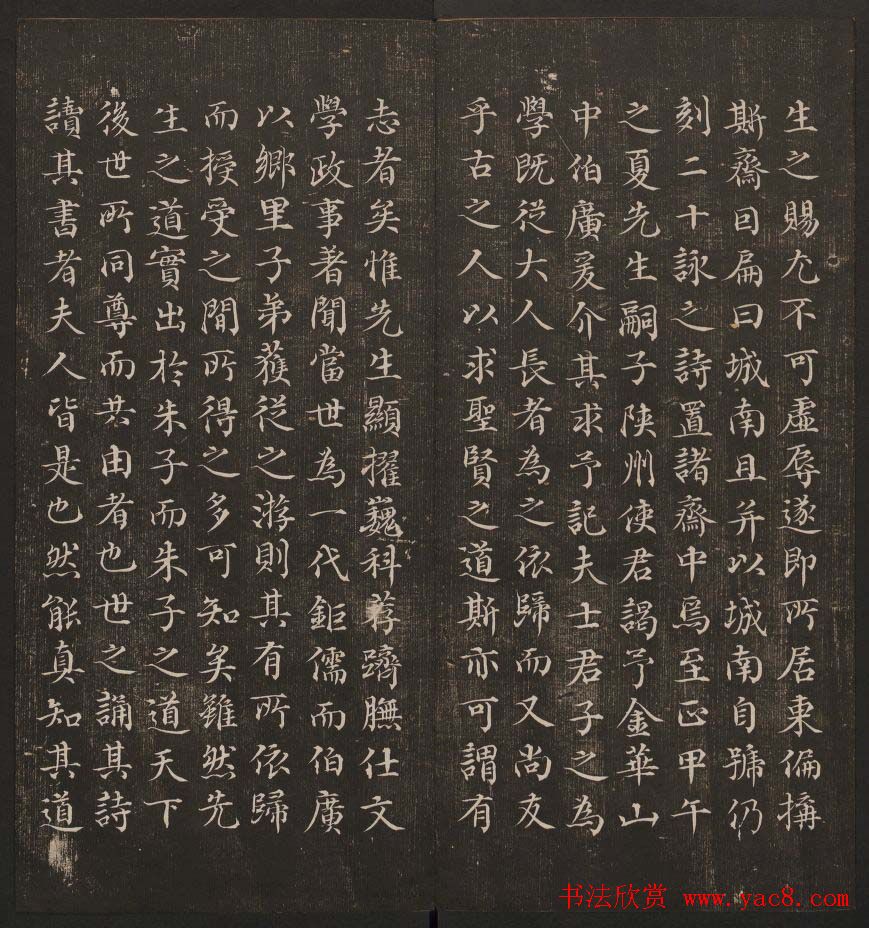 生之賜尤不可虛辱遂即所居東偏搆
斯齋囙扁曰城南且并以城南自號仍
刻二十詠之詩置諸齋中焉至正甲午
之夏先生嗣子陝州使君謁予金華山
中伯廣爰介其求予記夫士君子之為
學既從大人長者為之依歸而又尚友
乎古之人以求聖賢之道斯亦可謂有
志者矣惟先生顯擢巍科荐躋膴仕文
學政事著聞當世為一代鉅儒而伯廣
以鄉里子弟獲從之游則其有所依歸
而授受之間所得之多可知矣雖然先
生之道實出於朱子而朱子之道天下
後世所同尊而共由者也世之誦其詩
讀其書者夫人皆是也然能真知其道
书法欣赏 www.yac8.com